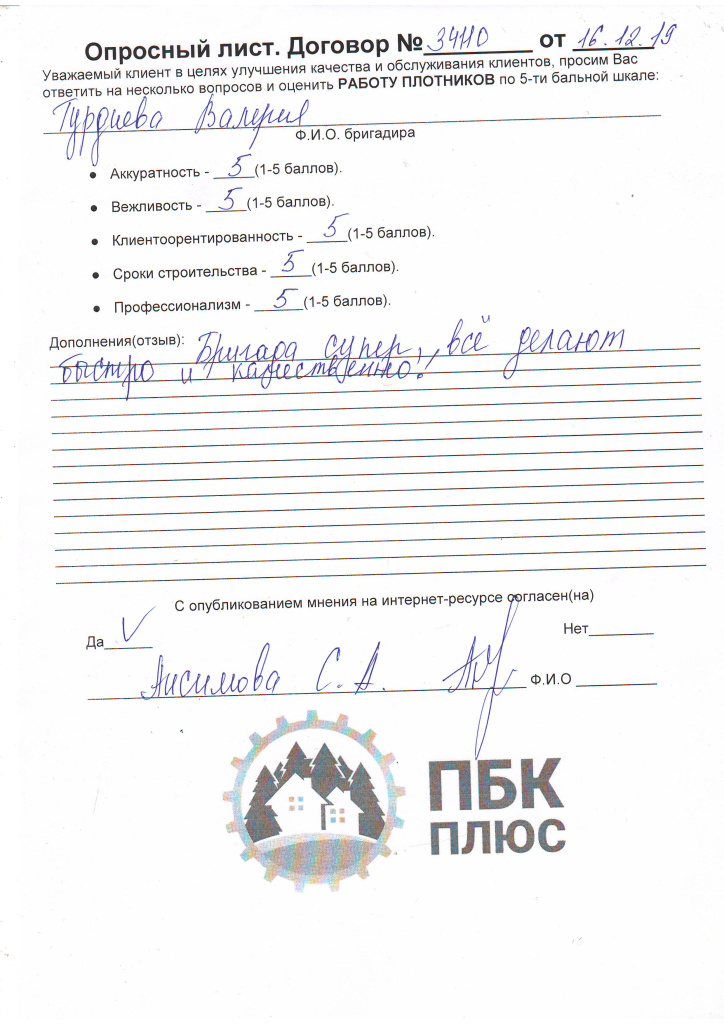 Опросный лист. Договор № 34110 от 16.12.19
Уважаемый клиент в целях улучшения качества и обслуживания клиентов, просим Вас
ответить на несколько вопросов и оценить РАБОТУ ПЛОТНИКОВ по 5-ти бальной шкале:
Турдиева Валерия
Ф.И.О. бригадира
● Аккуратность - 5 (1-5 баллов).
● Вежливость - 5 (1-5 баллов).
● Клиентоорентированность - 5 (1-5 баллов).
● Сроки строительства - 5 (1-5 баллов).
● Профессионализм - 5 (1-5 баллов).
Дополнения(отзыв): Бригада супер, всё делают
быстро и качественно!
С опубликованием мнения на интернет-ресурсе согласен(на)
Да V Нет
Анисимова С. А. Ф.И.О
ПБК
ПЛЮС